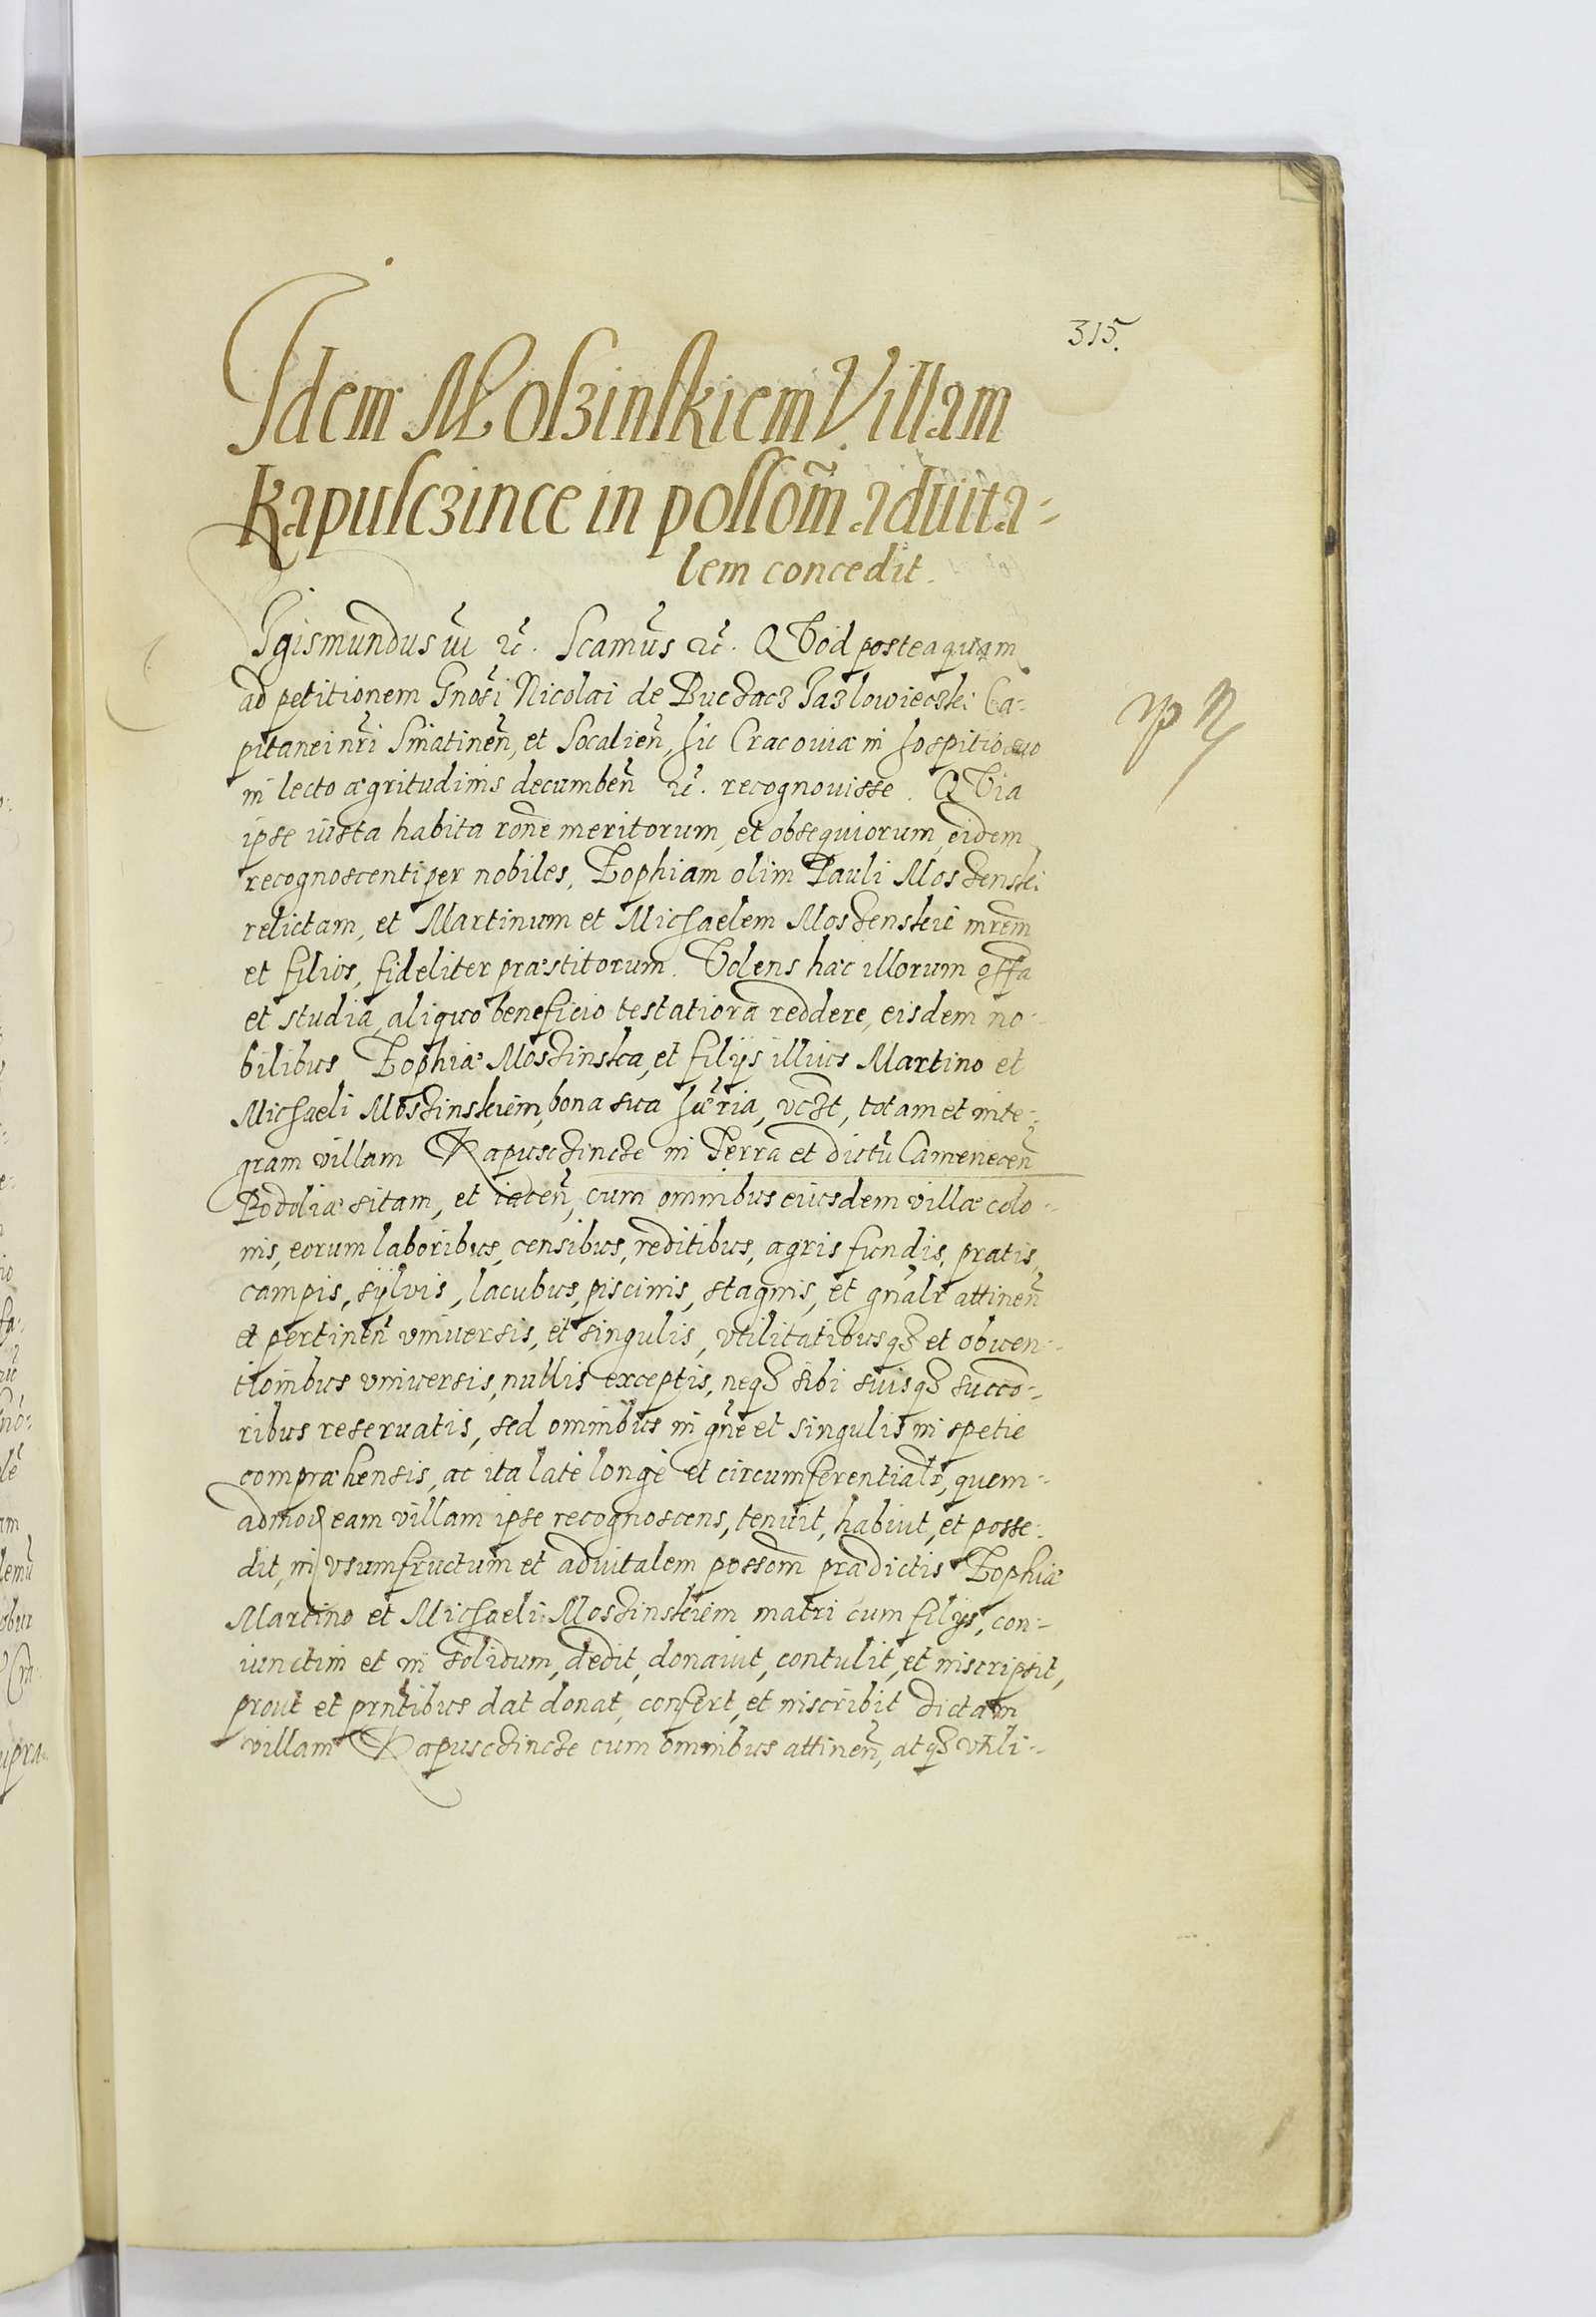 315.
Idem Moszinskiem Villam
Kapusczince in possõm aduita-
lem concedit.
Sgismundus iii &c. Scamus &c. QVod posteaquam
ad petitionem Gnosi Nicolai de Buczacz Jazlowieczki Ca-
pitanei nri Sniatinen, et Socalien, hic Cracouiæ in hospitio suo
in lecto ægritudinis decumben &c. recognouisse. QVia
ipse iusta habita rone meritorum, et obsequiorum, eidem
recognoscenti per nobiles, Zophiam olim Pauli Moszenski
relictam, et Martinum et Michaelem Moszenskie mrem
et filios, fideliter præstitorum. Volens hæc illorum offa
et studia, aliquo beneficio testatiora reddere, eisdem no-
bilibus Zophiæ Moszinska, et filijs illius Martino et
Michaeli Moszinskiem, bona sua hæria, vczt, totam et inte-
gram villam Kapuszczincze in Terra et dictu Camenecen
Podoliæ sitam, et iacen, cum omnibus eiusdem villæ colo-
nis, eorum laboribus, censibus, reditibus, agris fundis, pratis,
campis, sylvis, lacubus, piscinis, stagnis, et gnalr attinen
et pertinen vniuersis, et singulis, vtilitatibusq3 et obuen-
tionibus vniuersis, nullis exceptis, neq3 sibi suisq3 succo-
ribus reseruatis, sed omnibus in gne et singulis in spetie
compræhensis, ac ita late longe et circumferentialr, quem-
admod eam villam ipse recognoscens, tenuit, habuit, et posse-
dit, in vsumfructum et aduitalem possom prædictis Zophiæ
Martino et Michaeli Moszinskiem matri cum filijs, con-
iunctim et in solidum, dedit, donauit, contulit, et inscripsit,
prout et prntibus dat donat, confert, et inscribit dictam
villam Kapusczincze cum omnibus attinen, atq3 vtili-